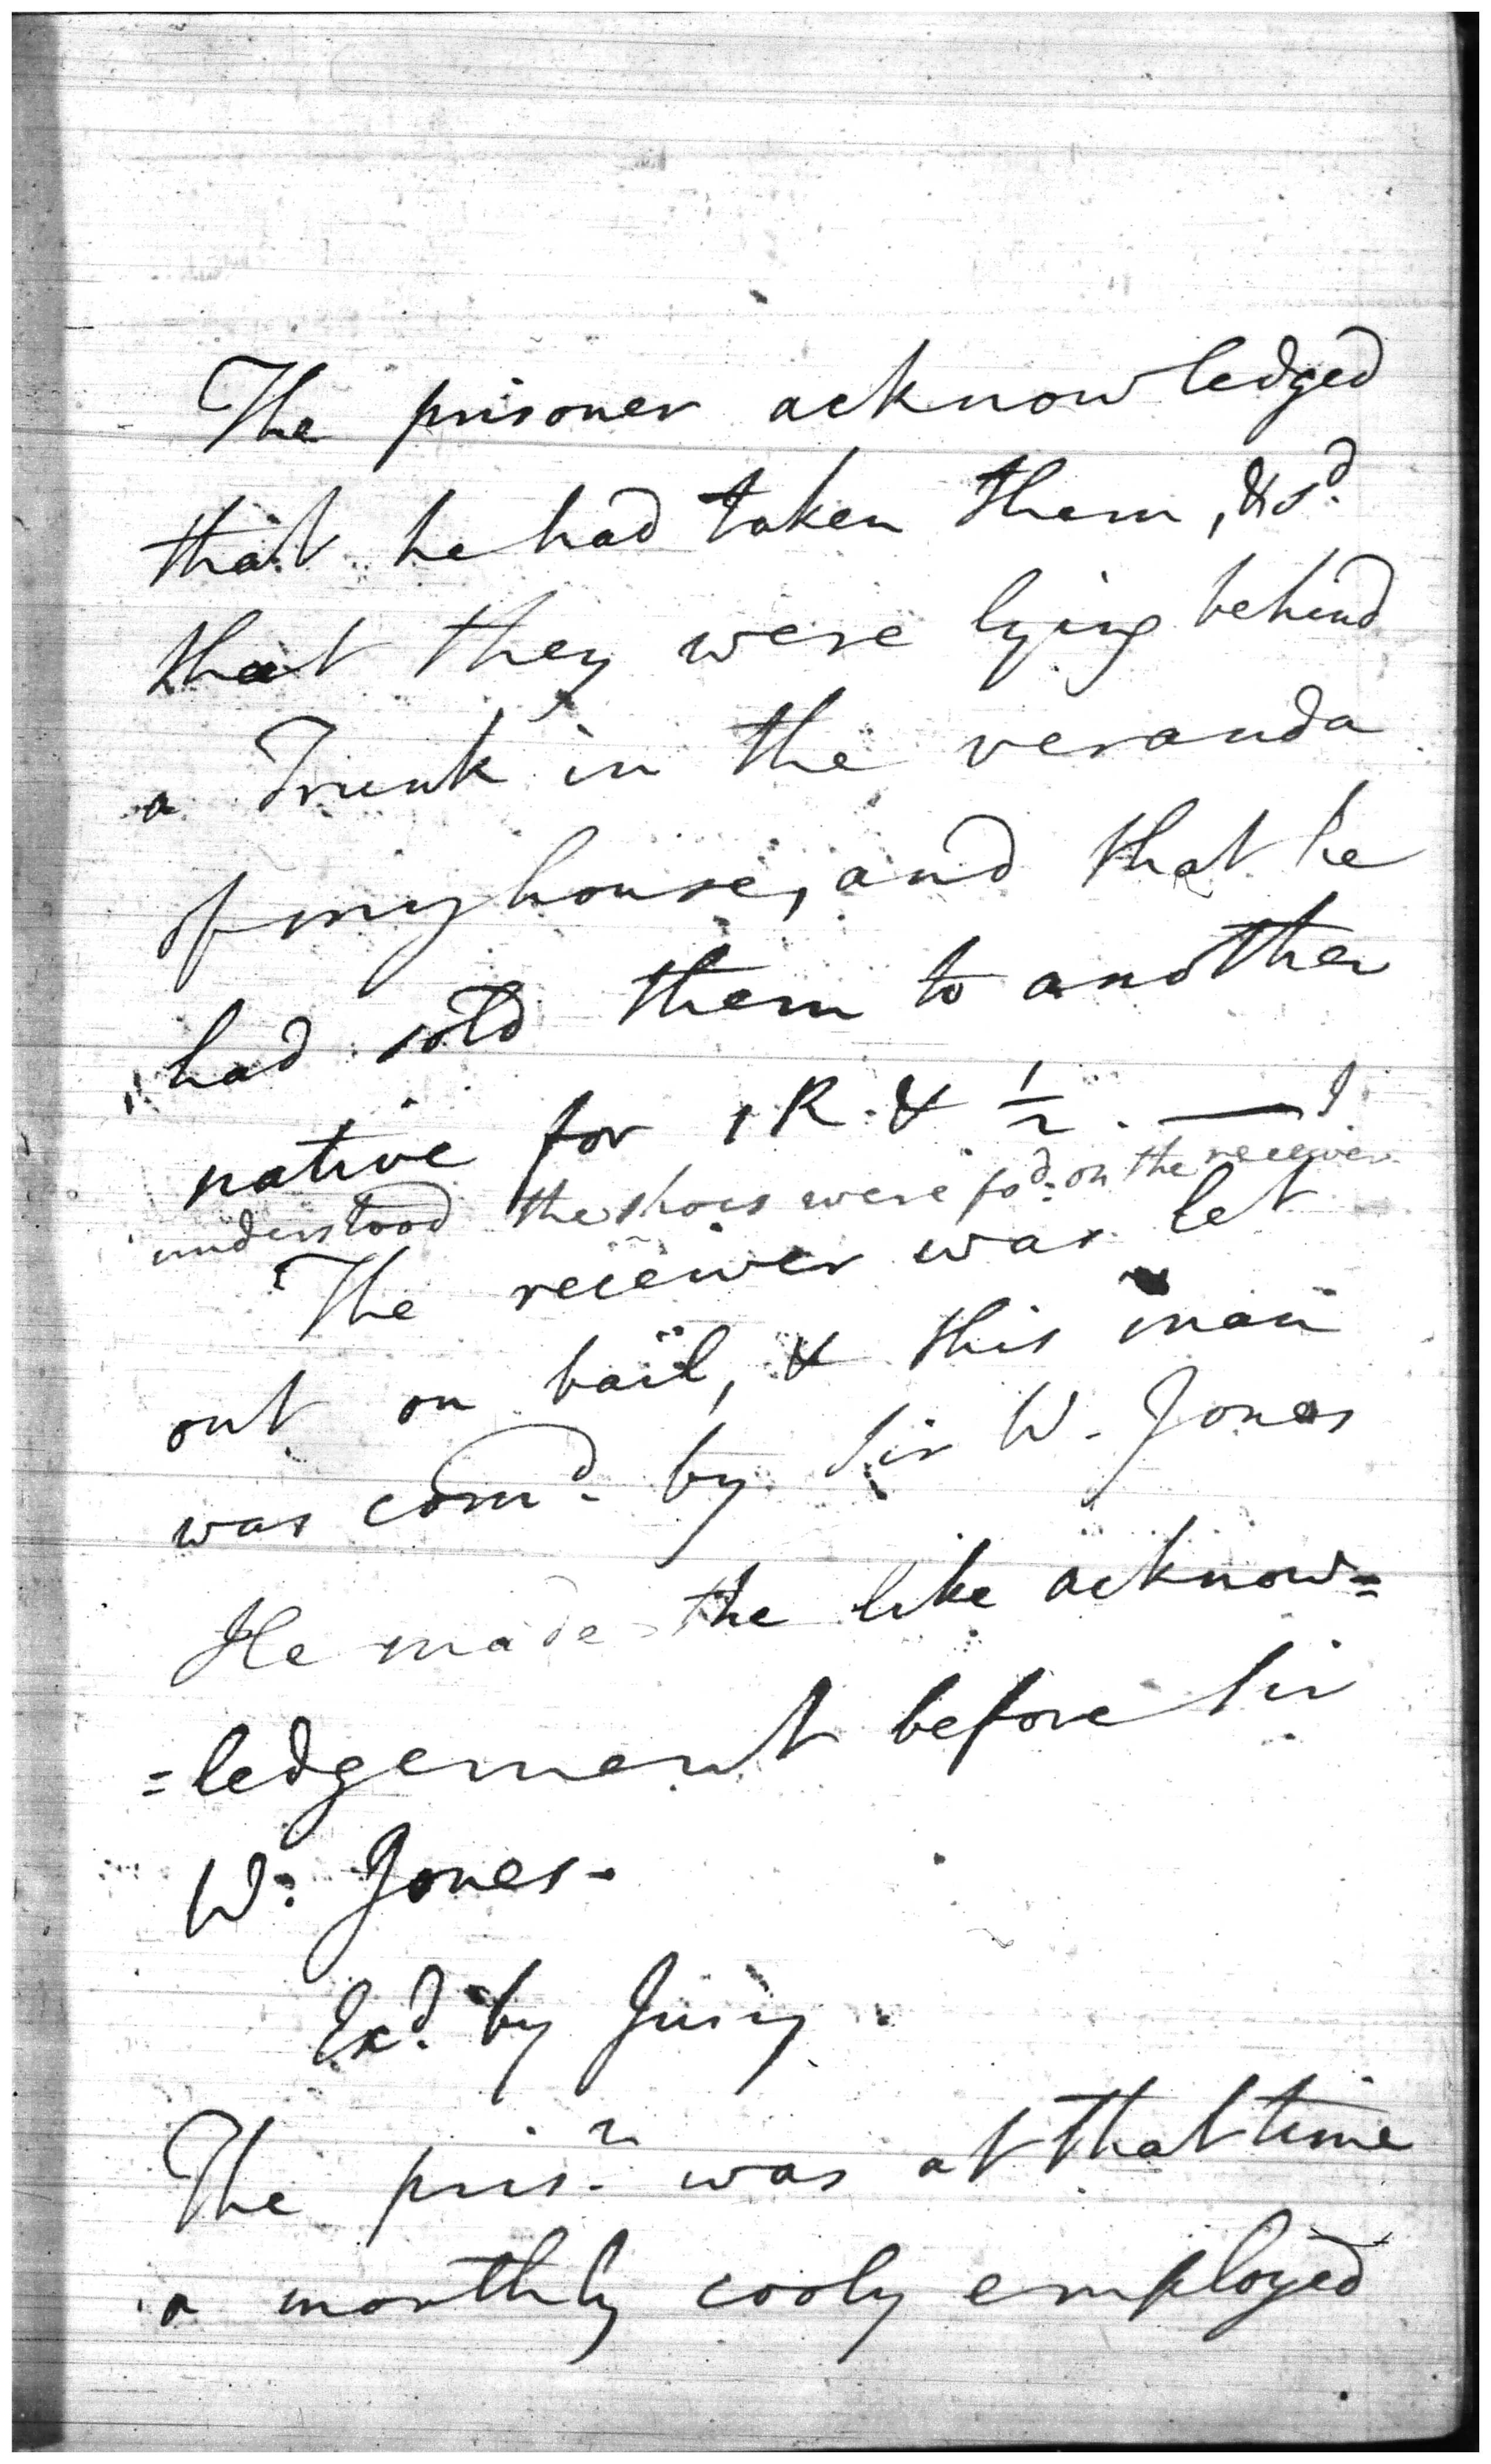 The prisoner acknowledged
that he had taken them, & sd.
that they were lying behind
a Trunk in the veranda
of my house, and that he
had sold them to another
native for 1 R. & 1/2. — I
understood the shoes were fod. on the receiver
The receiver was let
out on bail, & this man
was comd. by Sir W. Jones
He made the like acknow=
=ledgement before Sir
W: Jones.
Exd. by Jury.
The prisr. was at that time
a monthly cooly employed